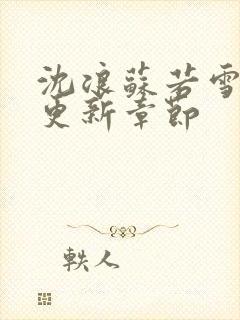 沈浪蘇若雪
更新章節
軼人